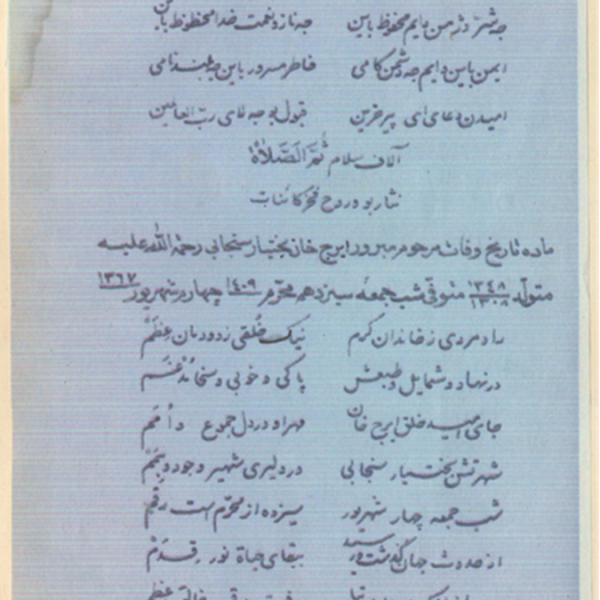 جه شر دژمن بایم محفوظ باین جه ناز و نعمت خدا محظوظ باین
ایمن باین دایم جه دشمن کامی خاطر مسرور باین جه بلندنامی
امیدن دعای ای پیر حزین قبول بو جه لای رب العالمین
آلاف سلام ثم الصلاة
نثار بو و روح فخر کائنات
ماده تاریخ وفات مرحوم مبرور ایرج خان بختیار سنجابی رحمة الله علیه
متولد ۱۳۴۸ متوفی شب جمعه سیزدهم محرم ۱۴۰۹ چهار شهریور ۱۳۶۷
راد مردی ز خاندان کرم نیک خلقی ز دودمان عظم
در نهاد و شمایل و طبعش پاکی و خوبی و سخا
جای امید خلق ایرج خان مهر او در دل جموع امم
شهرتش بختیار سنجابی در دلیری شهیر وجود و
شب جمعه چهار شهریور سیزده از محرم است رقم
از حدوث جهان گذشت و رسید ببقای حیاة نور قدم